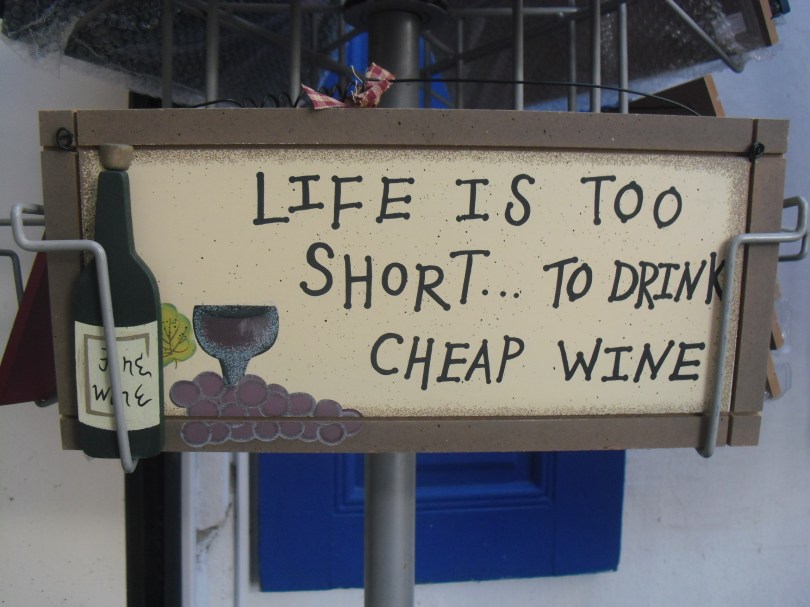 LIFE IS TOO
SHORT... TO DRINK
CHEAP WINE
WINE